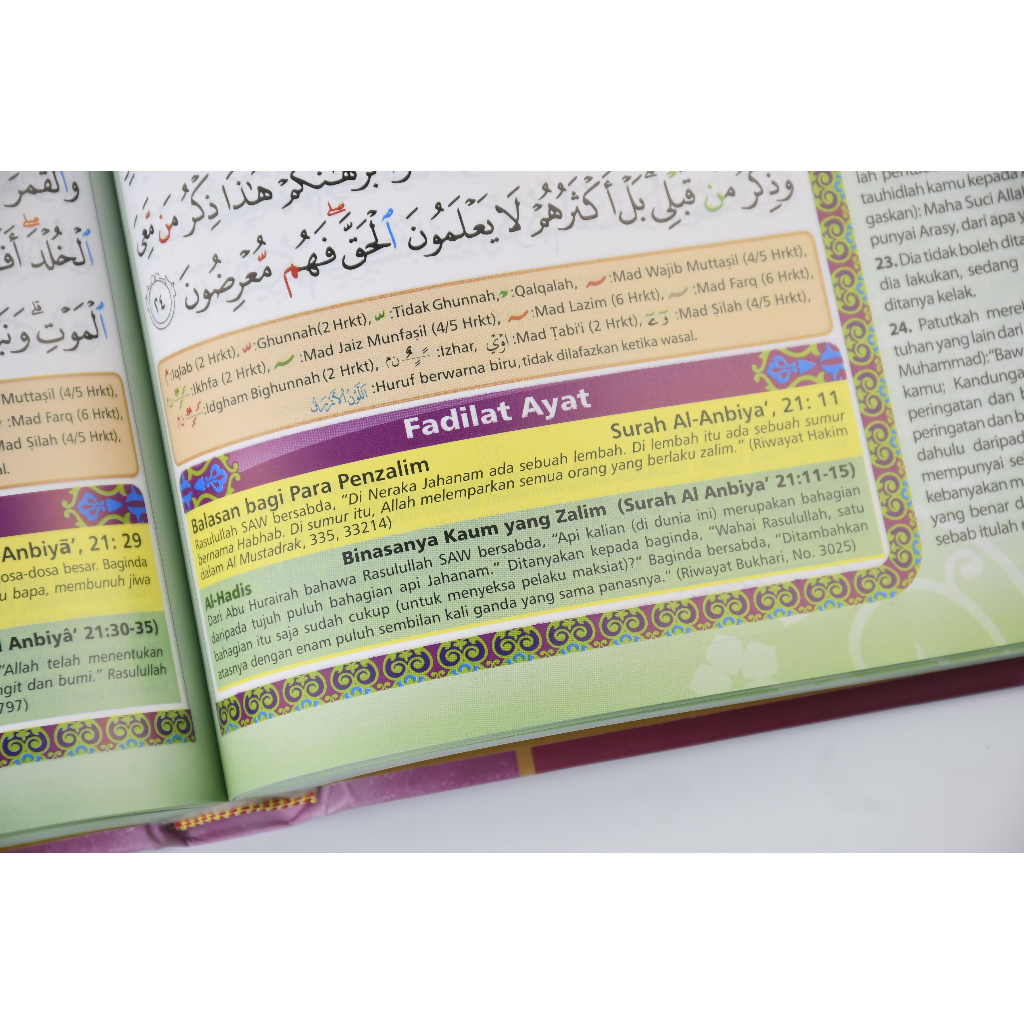 وَالْقَمَرَ
الْخُلْدَ
الْمَوْتِ
Muttaṣil (4/5 Hrkt),
:Mad Farq (6 Hrkt),
Mad Ṣilah (4/5 Hrkt),
Anbiyā’, 21: 29
dosa-dosa besar. Baginda
bapa, membunuh jiwa
Anbiyâ’ 21:30-35)
“Allah telah menentukan
ngit dan bumi.” Rasulullah
797)
هَٰذَا ذِكْرُ مَن مَّعِيَ
وَذِكْرُ مَن قَبْلِي بَلْ أَكْثَرُهُمْ لَا يَعْلَمُونَ الْحَقَّ فَهُم مُّعْرِضُونَ ٢٤
:Iqlab (2 Hrkt), :Ghunnah(2 Hrkt), :Tidak Ghunnah, :Qalqalah, :Mad Wajib Muttaṣil (4/5 Hrkt),
:Ikhfa (2 Hrkt), :Mad Jaiz Munfaṣil (4/5 Hrkt), :Mad Lazim (6 Hrkt), :Mad Farq (6 Hrkt),
:Idgham Bighunnah (2 Hrkt), :Izhar, :Mad Ṭabi'i (2 Hrkt), :Mad Ṣilah (4/5 Hrkt),
:Huruf berwarna biru, tidak dilafazkan ketika wasal.
Fadilat Ayat
Balasan bagi Para Penzalim Surah Al-Anbiya’, 21: 11
Rasulullah SAW bersabda, “Di Neraka Jahanam ada sebuah lembah. Di lembah itu ada sebuah sumur
bernama Habhab. Di sumur itu, Allah melemparkan semua orang yang berlaku zalim.” (Riwayat Hakim
dalam Al Mustadrak, 335, 33214)
Al-Hadis Binasanya Kaum yang Zalim (Surah Al Anbiya’ 21:11-15)
Dari Abu Hurairah bahawa Rasulullah SAW bersabda, “Api kalian (di dunia ini) merupakan bahagian
daripada tujuh puluh bahagian api Jahanam.” Ditanyakan kepada baginda, “Wahai Rasulullah, satu
bahagian itu saja sudah cukup (untuk menyeksa pelaku maksiat)?” Baginda bersabda, “Ditambahkan
atasnya dengan enam puluh sembilan kali ganda yang sama panasnya.” (Riwayat Bukhari, No. 3025)
tauhidlah kamu kepada
gaskan): Maha Suci Alla
punyai Arasy, dari apa y
23. Dia tidak boleh dita
dia lakukan, sedang
ditanya kelak.
24. Patutkah mere
tuhan yang lain dari
Muhammad):“Baw
kamu; Kandunga
peringatan dan b
peringatan dan b
dahulu daripad
mempunyai se
kebanyakan m
yang benar d
sebab itulah